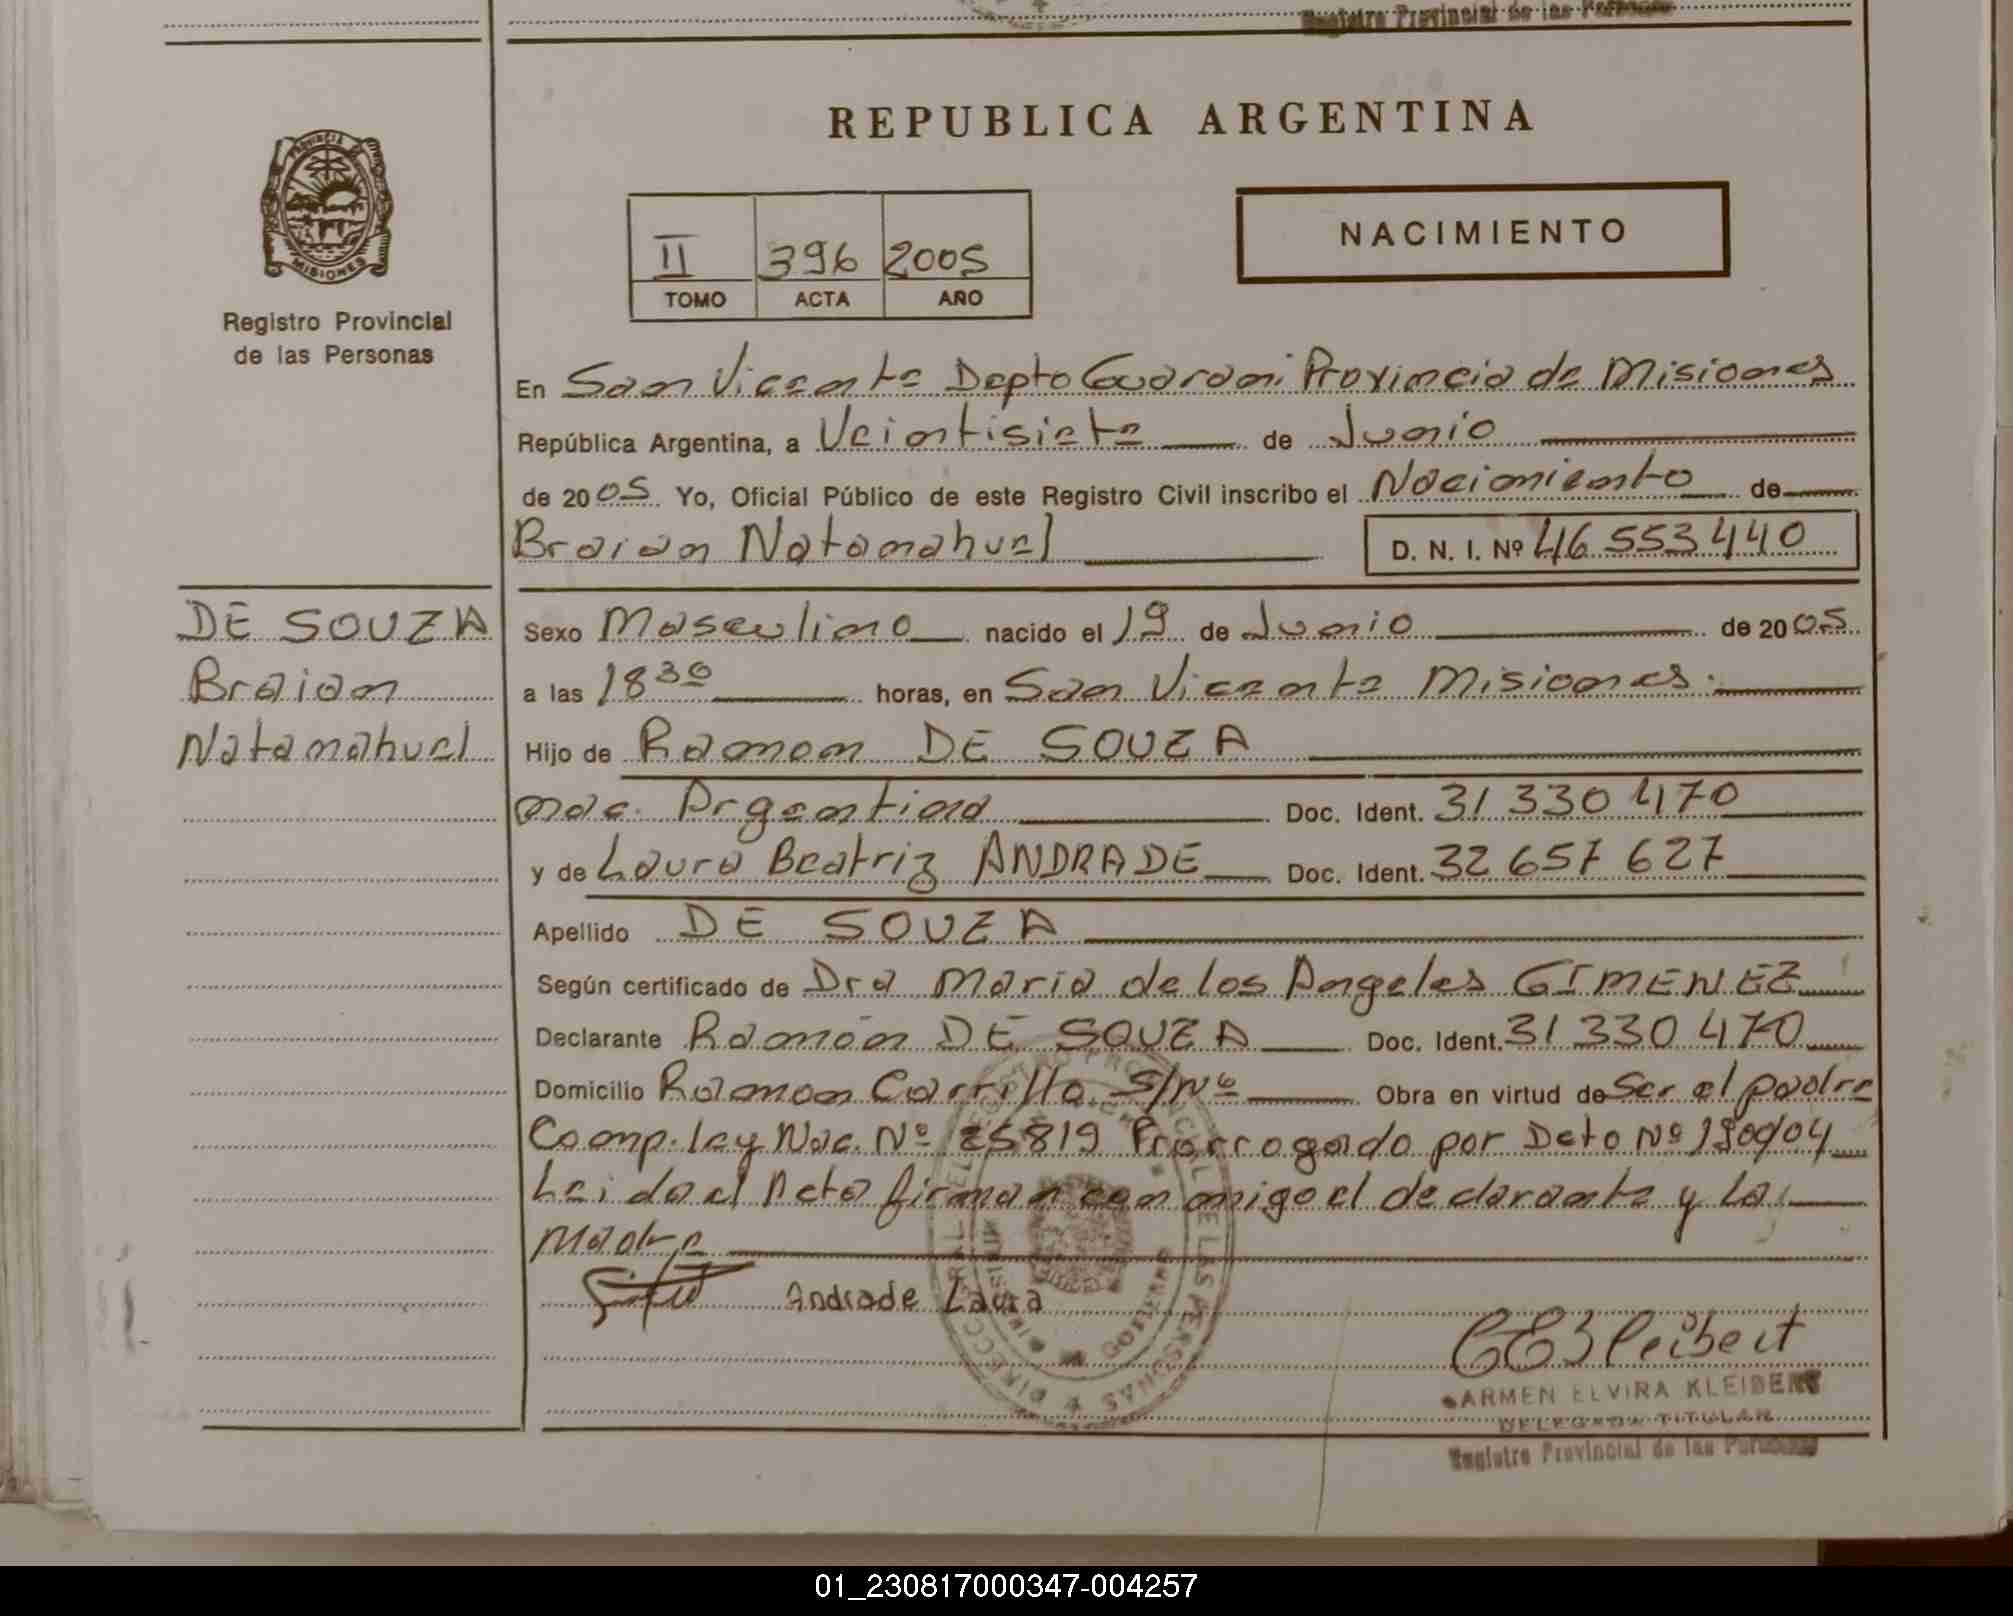 Registro Provincial de las Personas
REPUBLICA ARGENTINA
PROVINCIA DE
MISIONES
Registro Provincial
de las Personas
II 396 2005
TOMO ACTA AÑO
NACIMIENTO
En San Vicente Depto Guarani Provincia de Misiones
República Argentina, a Veintisiete de Junio
de 2005 Yo, Oficial Público de este Registro Civil inscribo el Nacimiento de
Braian Natanahuel D. N. I. Nº 46 553 440
DE SOUZA
Braian
Natanahuel
Sexo Masculino nacido el 19 de Junio de 2005
a las 18 30 horas, en San Vicente Misiones.
Hijo de Ramon DE SOUZA
nac. Argentina Doc. Ident. 31 330 470
y de Laura Beatriz ANDRADE Doc. Ident. 32 657 627
Apellido DE SOUZA
Según certificado de Dra Maria de los Angeles GIMENEZ
Declarante Ramón DE SOUZA Doc. Ident. 31 330 470
Domicilio Ramon Carrillo S/Nº Obra en virtud de Ser el padre
Comp. ley Nac. Nº 25819 Prorrogado por Dcto Nº 190/04
Leido el Acta firman conmigo el declarante y la
Madre
Andrade Laura
CEKleibert
CARMEN ELVIRA KLEIBERT
DELEGADA TITULAR
Registro Provincial de las Personas
01_230817000347-004257